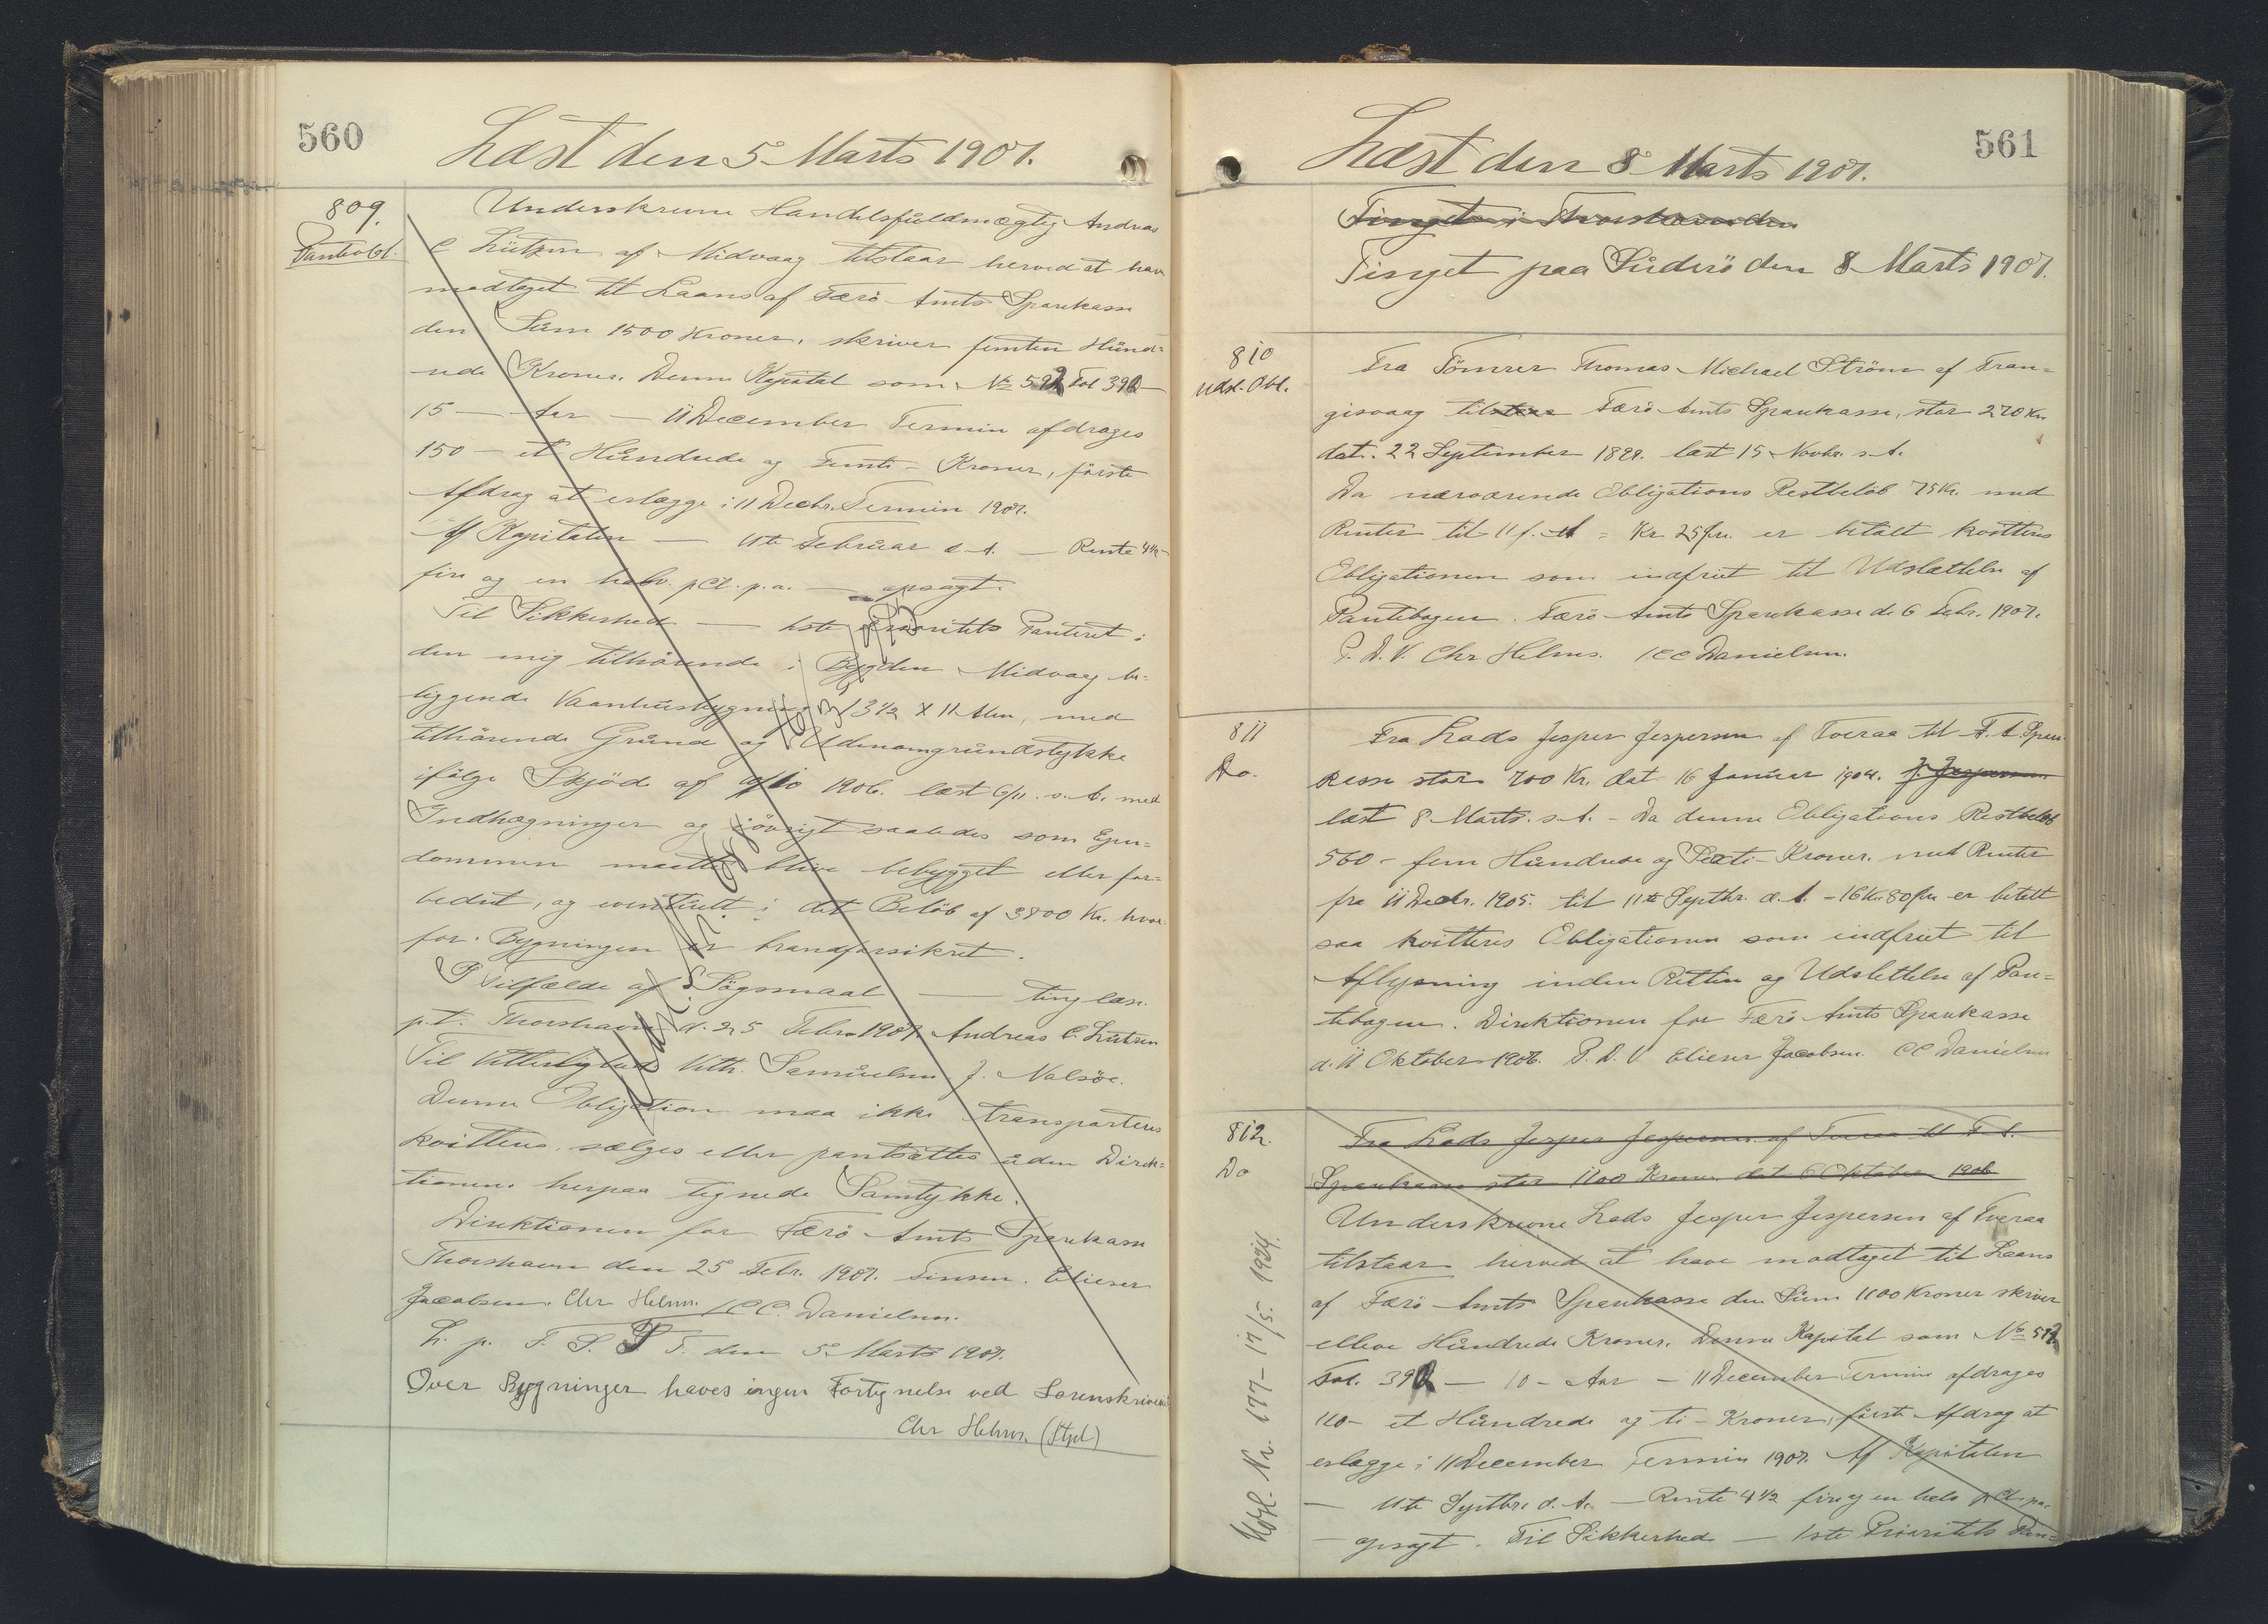 560
Læst den 5 Marts 1907.
809.
Panteobl.
Underskrevne Handelsfuldmægtig Andreas
C Lützen af Midvaag tilstaar herved at have
modtaget til Laans af Færö Amts Sparekasse
den Sum 1500 Kroner, skriver femten Hund=
rede Kroner. Denne Kapital som No 592 Fol 392 —
15 — Aar — 11 December Termin afdrages
150 — et Hundrede og Femti — Kroner, förste
Afdrag at erlægge i 11 Decbr. Termin 1907.
Af Kapitalen — 11te Februar d. A. — Rente 4½ —
fire og en halv. pCt. p.a. — opsagt.
Til Sikkerhed — 1ste Prioritets Panteret i
den mig tilhörende i Bygden Midvaag be=
liggende Vaanhusbygning 13½ X 11 Alen, med
tilhörende Grund og Udenomgrundstykke
ifölge Skjöde af 1906. læst 6/11. s. A. med
Indhægninger og iövrigt saaledes som Ejen=
dommen maatte blive bebygget eller for=
bedret, og eventuelt i det Belöb af 3800 Kr. hvor=
for Bygningen er brandforsikret.
I Tilfælde af Sögsmaal — tinglæse.
p.t. Thorshavn d. 25 Febr. 1907. Andreas C. Lützen
Til Vitterlighed Vilh. Samuelsen J. Nalsöe.
Denne Obligation maa ikke transporteres
kvitteres, sælges eller pantsættes uden Direk=
tionens herpaa tegnede Samtykke.
Direktionen for Færö Amts Sparekasse
Thorshavn den 25 Febr. 1907. Finsen. Elieser
Jacobsen. Chr Helms. / C C. Danielsen.
L. p. T. S. T. den 5 Marts 1907.
Over Bygninger haves ingen Fortegnelse ved Sorenskriveriet
Chr Helms. (Stpl)
561
Læst den 8 Marts 1907.
Tinget i Thorshavn den
Tinget paa Suderö den 8 Marts 1907.
810
Udsl. Obl.
Fra Tömrer Thomas Michael Ström af Tran=
gisvaag til Færö Amts Sparekasse, stor 270 Kr.
dat. 22 September 1899. læst 15 Novbr. s. A.
Da nærværende Obligations Restbelöb 75 Kr. med
Renter til 11 f. M = Kr 25 Øre. er betalt kvitteres
Obligationen som indfriet til Udslættelse af
Pantebogen. Færö Amts Sparekasse d. 6 Febr. 1907.
P. D. V. Chr Helms. / C C Danielsen.
811
Do.
Fra Lads Jesper Jespersen af Tveraa til F. A. Spare
kasse stor 700 Kr. dat. 16 Januar 1904. J. Jespersen
læst 8 Marts. s. A. — Da denne Obligations Restbelöb
560 — fem Hundrede og Sexti — Kroner. med Renter
fra 11 Decbr. 1905. til 11te Septbr. d. A. — 16 Kr. 80 Øre er betalt
saa kvitteres Obligationen som indfriet til
Aflysning inden Retten og Udslettelse af Pan=
tebogen. Direktionen for Færö Amts Sparekasse
d. 11 Oktober 1906. P. D. V. Elieser Jacobsen. C C Danielsen
812.
Do
Fra Lads Jesper Jespersen af Tveraa til F. A.
Sparekasse stor 1100 Kroner dat 6 Oktober 1906
Underskrevne Lads Jesper Jespersen af Tveraa
tilstaar herved at have modtaget til Laans
af Færö Amts Sparekasse den Sum 1100 Kroner skriver
elleve Hundrede Kroner. Denne Kapital som No 592
Fol. 392 — 10 — Aar — 11 December Termin afdrages
110 — et Hundrede og ti — Kroner, förste Afdrag at
erlægge i 11 December Termin 1907. Af Kapitalen
— 11te Septbr. d. A. — Rente 4½ fire og en halv pCt. p.a.
— opsagt. Til Sikkerhed — 1ste Prioritets Pan=
Udsl. Nr. 177 — 17/5. 1924.